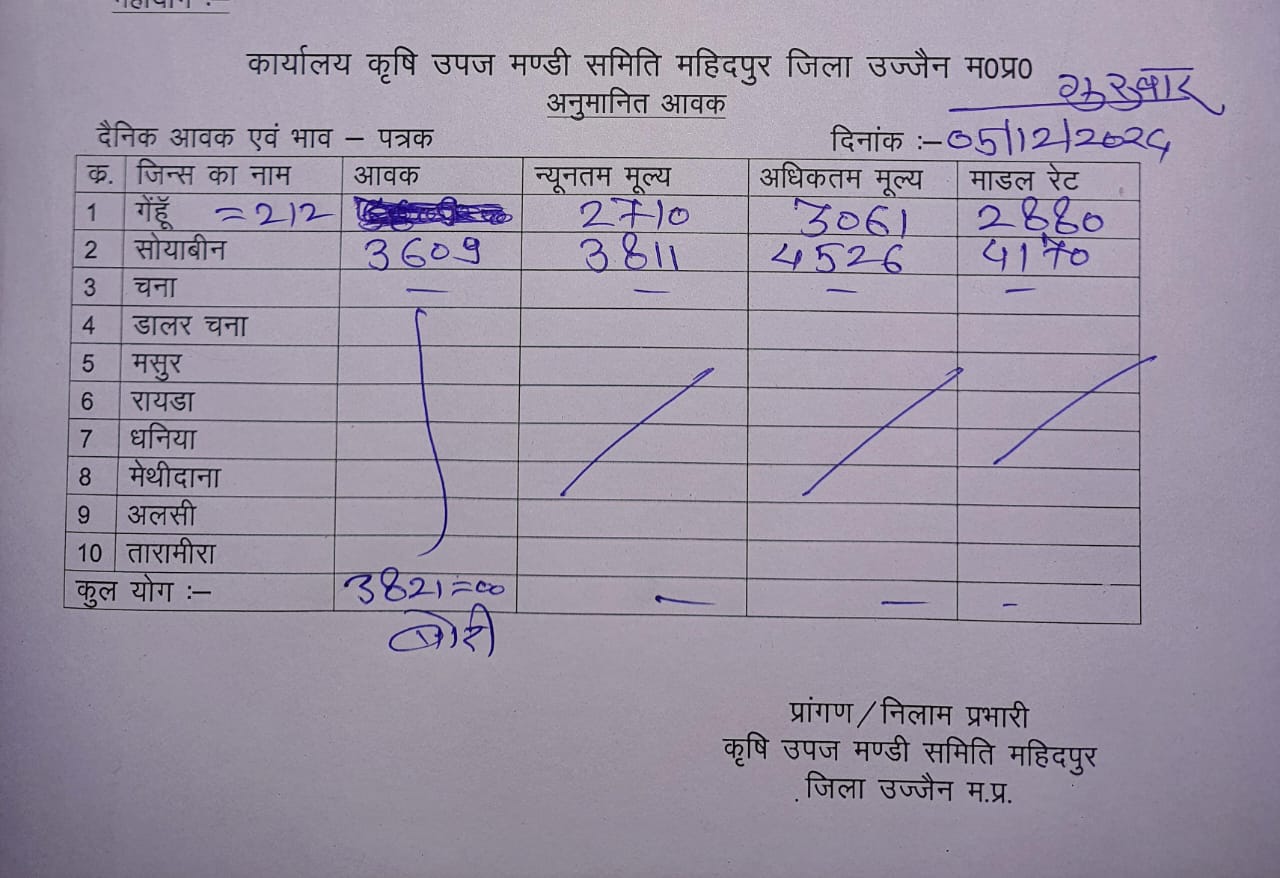 कार्यालय कृषि उपज मण्डी समिति महिदपुर जिला उज्जैन म0प्र0
गुरुवार
अनुमानित आवक
दैनिक आवक एवं भाव – पत्रक दिनांक :– 05/12/2024
क्र. जिन्स का नाम आवक न्यूनतम मूल्य अधिकतम मूल्य माडल रेट
1 गेंहूॅ =212 2710 3061 2880
2 सोयाबीन 3609 3811 4526 4170
3 चना — — — —
4 डालर चना
5 मसुर
6 रायडा
7 धनिया
8 मेथीदाना
9 अलसी
10 तारामीरा
कुल योग :– 3821=00 — — -
बोरी
प्रांगण / निलाम प्रभारी
कृषि उपज मण्डी समिति महिदपुर
जिला उज्जैन म.प्र.